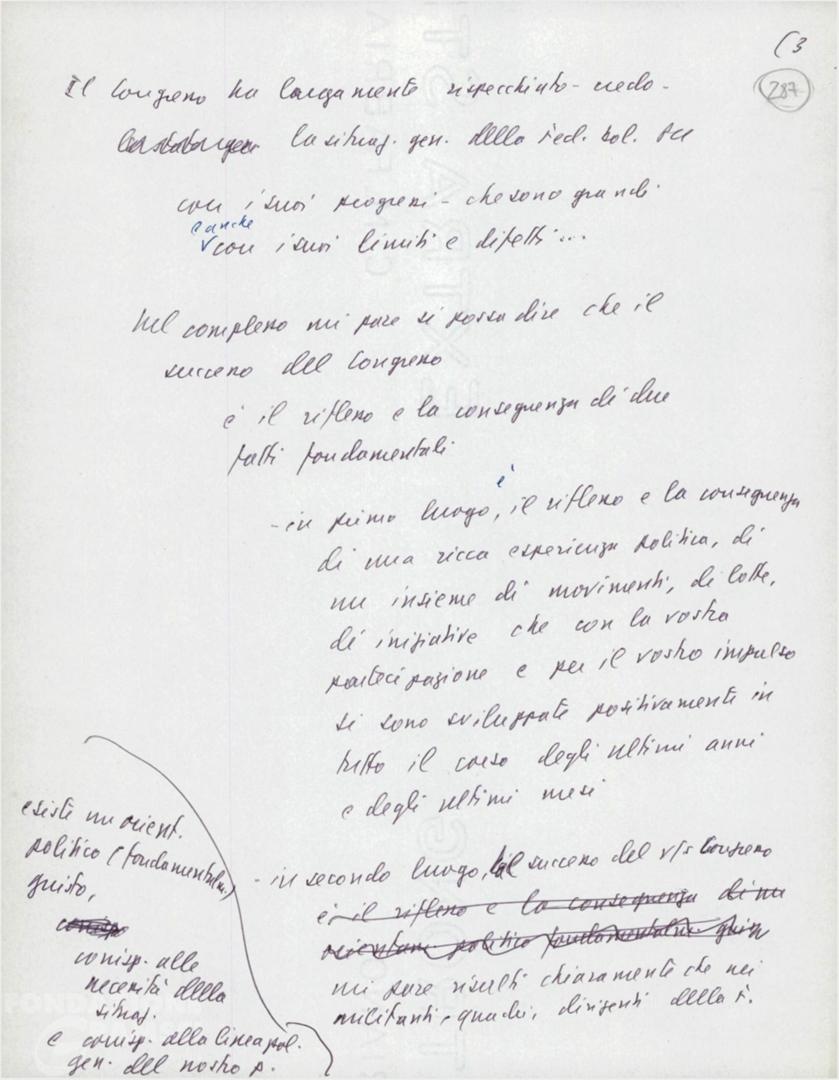 (3
287
Il Congresso ha largamente rispecchiato - credo -
la situaz. gen. della Fed. bol. PCI
con i suoi progressi - che sono grandi
e anche
con i suoi limiti e difetti...
Nel complesso mi pare si possa dire che il
successo del Congresso
è il riflesso e la conseguenza di due
fatti fondamentali
è
- in primo luogo, il riflesso e la conseguenza
di una ricca esperienza politica, di
un insieme di movimenti, di lotte,
di iniziative che con la vostra
partecipazione e per il vostro impulso
si sono sviluppate positivamente in
tutto il corso degli ultimi anni
e degli ultimi mesi
- in secondo luogo, dal successo del v/s Congresso
è il riflesso e la conseguenza di un
orientam. politico fondamentalm. giusto
mi pare risulti chiaramente che nei
militanti, quadri, dirigenti della F.
esiste un orient.
politico (fondamentalm.)
giusto,
corrisp. alle
necessità della
situaz.
e corrisp. alla linea pol.
gen. del nostro p.
FONDAZIONE